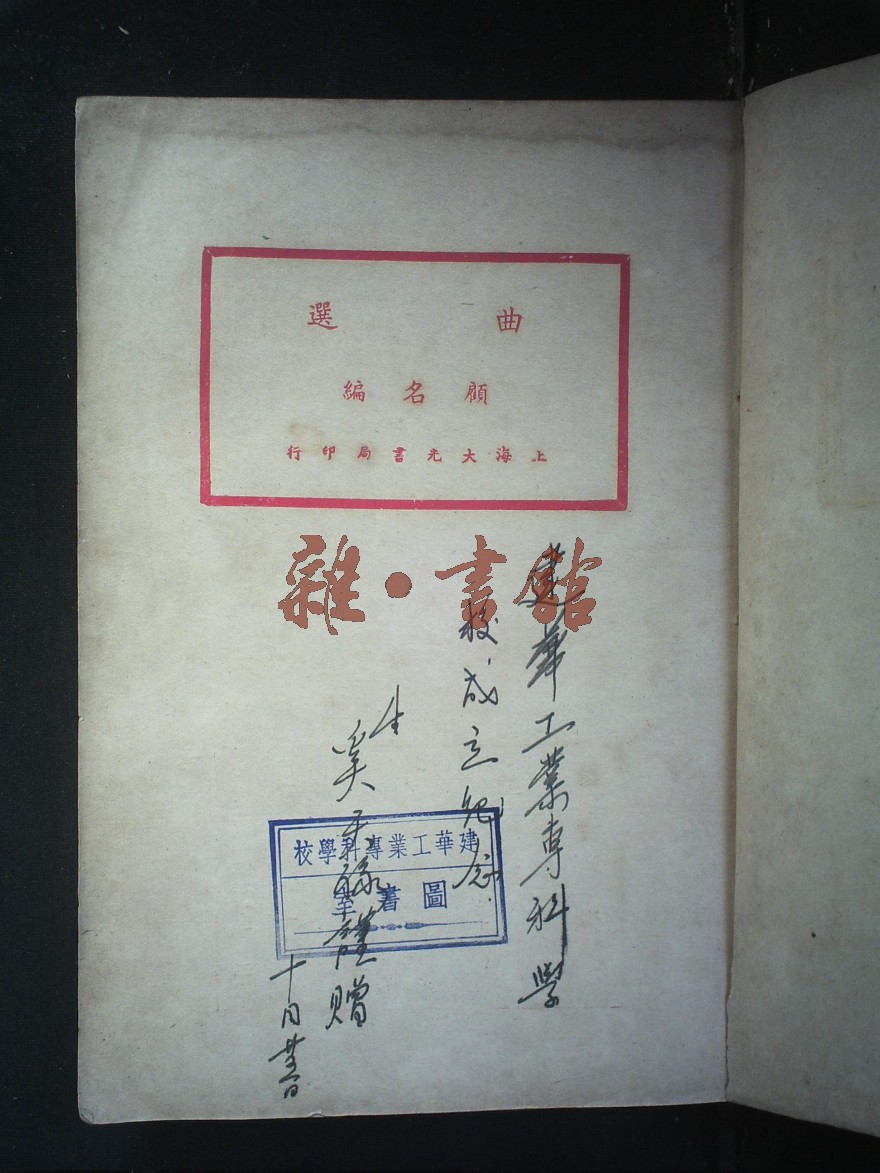 曲選
顧名編
上海大光書局印行
雜·書館
建華工業專科學
校成立紀念
生
奚
謹贈
十月
建華工業專科學校
圖書室